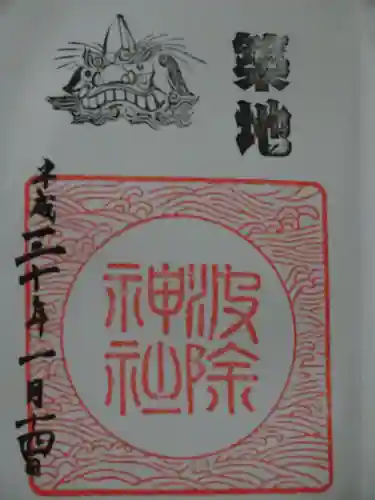 築地
波除
神社
平成三十年一月十四日